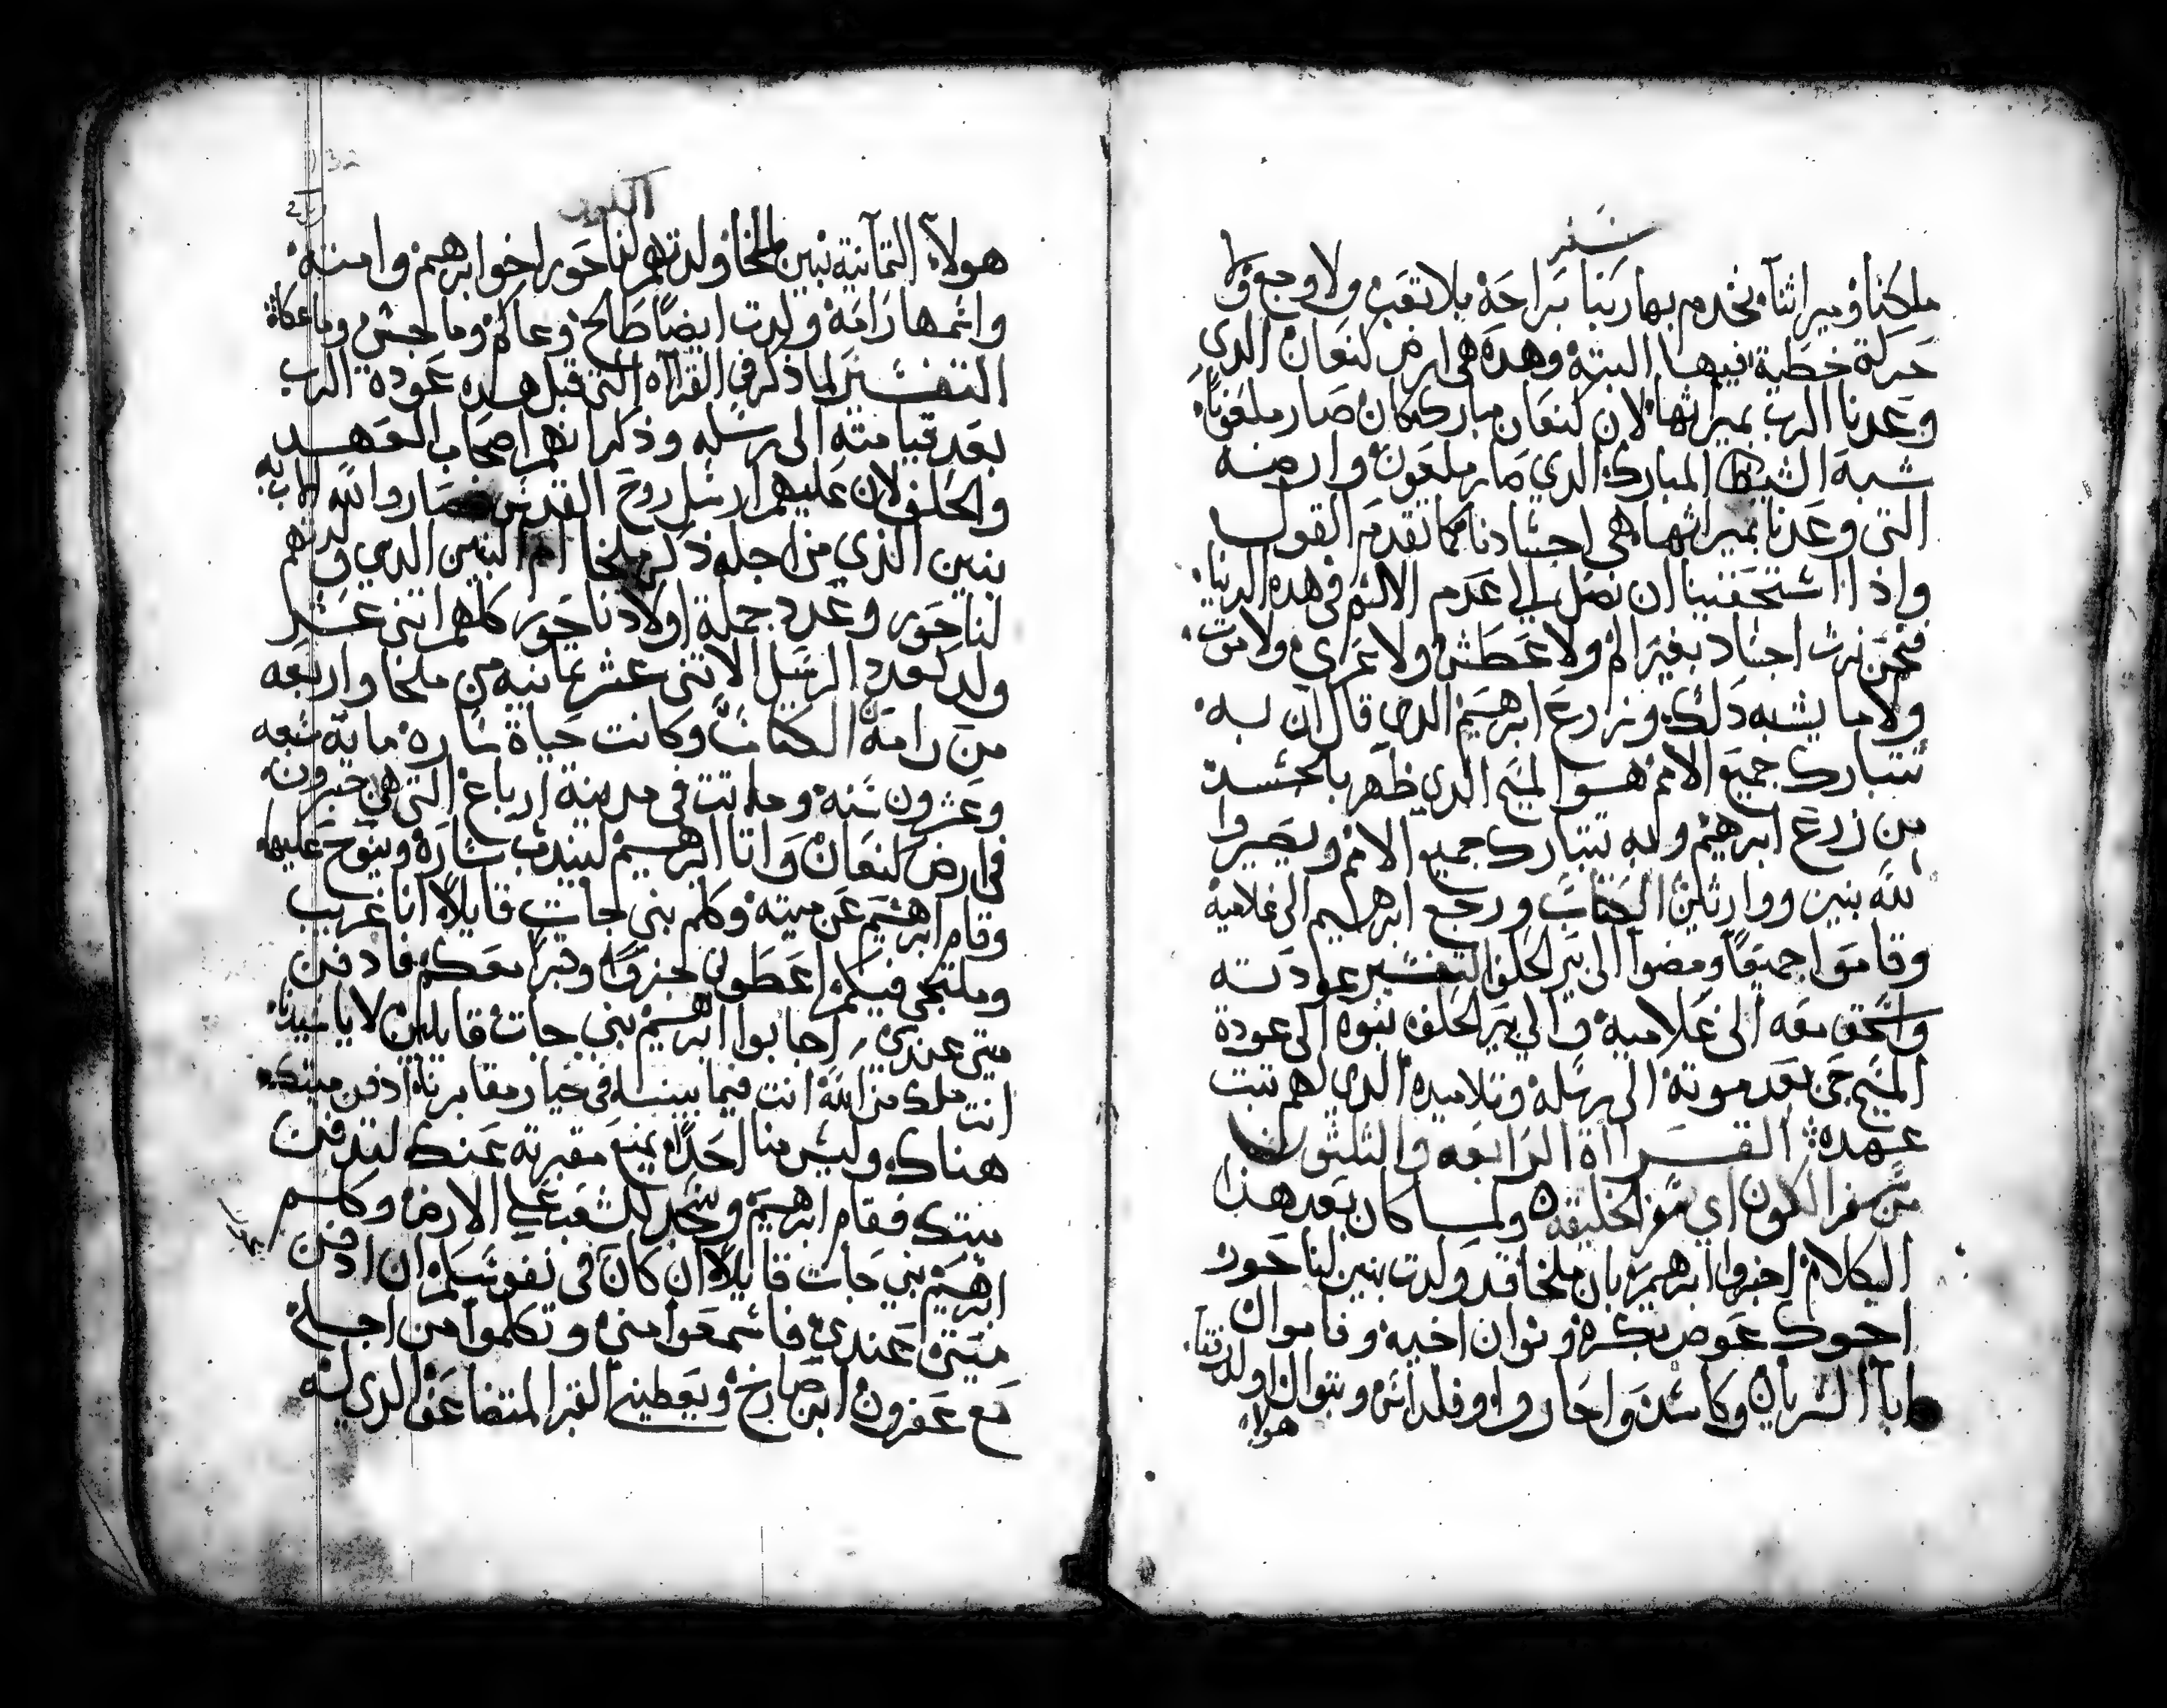 سفر
ملكنا وميراثنا نخدم بها ربنا براحة بلا تعب ولا وجع ولا
حركة خطية فيها البتة وهده هى ارض كنعان الدي
وعدنا الرب بميراثها لان كنعان مبارك كان صار ملعونا
شبه المبارك الدي صار ملعون وارضه
التى وعدنا بميراثها هى اجسادنا كما تقدم القول
واذا استحقينا ان نصل الى عدم الالم فى هده الدنيا
فنحن نرث اجساد بغير الم ولا عطش ولا عرى ولا موت
ولا ما يشبه دلك وزرع ابرهيم الدى قال ان به
تتبارك جميع الامم هو المسيح الدي ظهر بالجسد
من زرع ابرهيم وله تتبارك جميع الامم ويصيروا
لله بنين ووارثين الكتاب ورجع ابرهيم الى غلاميه
وقاموا جميعا ومضوا الى بير الحلف التفسير عودته
واسحق معه الى غلاميه والى بير الحلف نبوه الى عودة
المسيح حى بعد موته الى رسله وتلاميده الدي لهم تبت
عهده القراة الرابعه والتلثون
من سفر الكون اي سفر الخليقه ولما كان بعد هدا
الكلام اخبروا ابرهيم بان ملخا قد ولدت بنين لناحور
اخوك عوص بكره وبوان اخيه وقاموال
ابا السريان وكاسد واحاروا وفلداش وبتوال اولدتها
هولا
التكوين
هولاء التمانية بنين ملخا ولدتهم لناحور اخو ابرهيم وامته
واسمها رامة ولدت ايضا طالح وعاكم وماجش وماعكاه
التفسير لما ذكر فى القراه التى قبل هده عوده الرب
بعد قيامته الى رسله وذكر انهم اصحاب العهد
والحلف لان عليهم ارسل روح القدس فصاروا لله الاب به
بنين الذي من اجله ذكر ملخا ام البنين الدي ولدتهم
لناحور وعدد جملة اولاد ناحور كلهم اتنى عشر
ولد كعدد الرسل الاتنى عشر تمانيه من ملخا واربعه
من رامة الكتاب وكانت حياة ساره مايه سبعه
وعشرون سنه وماتت فى مدينة ارباع التى هى حبرون
فى ارض كنعان واتا ابرهيم ليندب سارة وينوح عليها
وقام ابرهيم عن ميته وكلم بنى حات قايلا انا غريب
وملتجى فيكم اعطونى قبرا معكم فادفن
ميتى عندى اجابوا ابرهيم بني حات قايلين لا يا سيدنا
انت ملك من الله انت فيما بيننا فى خيار مقابرنا ادفن ميتك
هناك وليس منا احدا يمنع مقبرته عنك لتدفن
ميتك فقام ابرهيم وسجد لشعب الارض وكلم
ابرهيم بني حات قايلا ان كان فى نفوسكم ان ادفن
ميتى عندي فاسمعوا منى وتكلموا من اجلى
مع عفرون ابن صارخ ويعطينى القبر المتضاعف الدي له